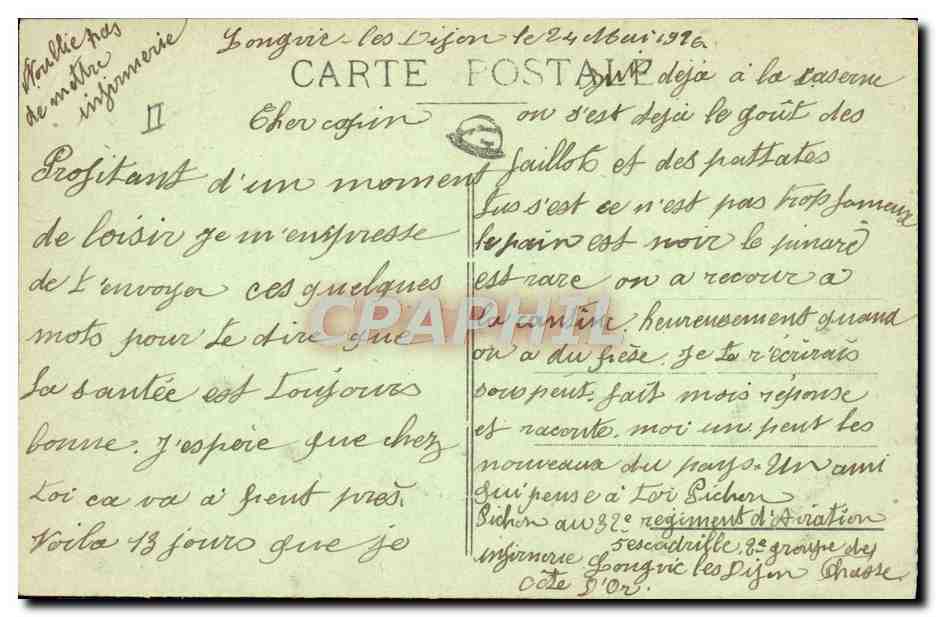 N'oublie pas
de mettre
infirmerie
Longvic-les Dijon le 24 Mai 1926
CARTE POSTALE
II
Cher copin
Profitant d'un moment
de loisir je m'enpresse
de t'envoyer ces quelques
mots pour te dire que
la santée est toujours
bonne. J'espère que chez
toi ca va à peut près.
Voila 13 jours que je
suis dejà à la caserne
on s'est dejà le goût des
faillots et des pattates
Jus s'est ce n'est pas trop fameux
le pain est noir le pinard
est rare on a recour a
la cantine. heureusement quand
on a du pèse. Je te r'écrirais
sous peut. fait mois réponse
et raconte moi un peut les
nouveaux du pays. Un ami
qui pense à toi Pichon
Pichon au 32e regiment d'Aviation
5 escadrille 2e groupe de
infirmerie Longvic les Dijon Chasse
Côte D'Or.
CPAPHIL